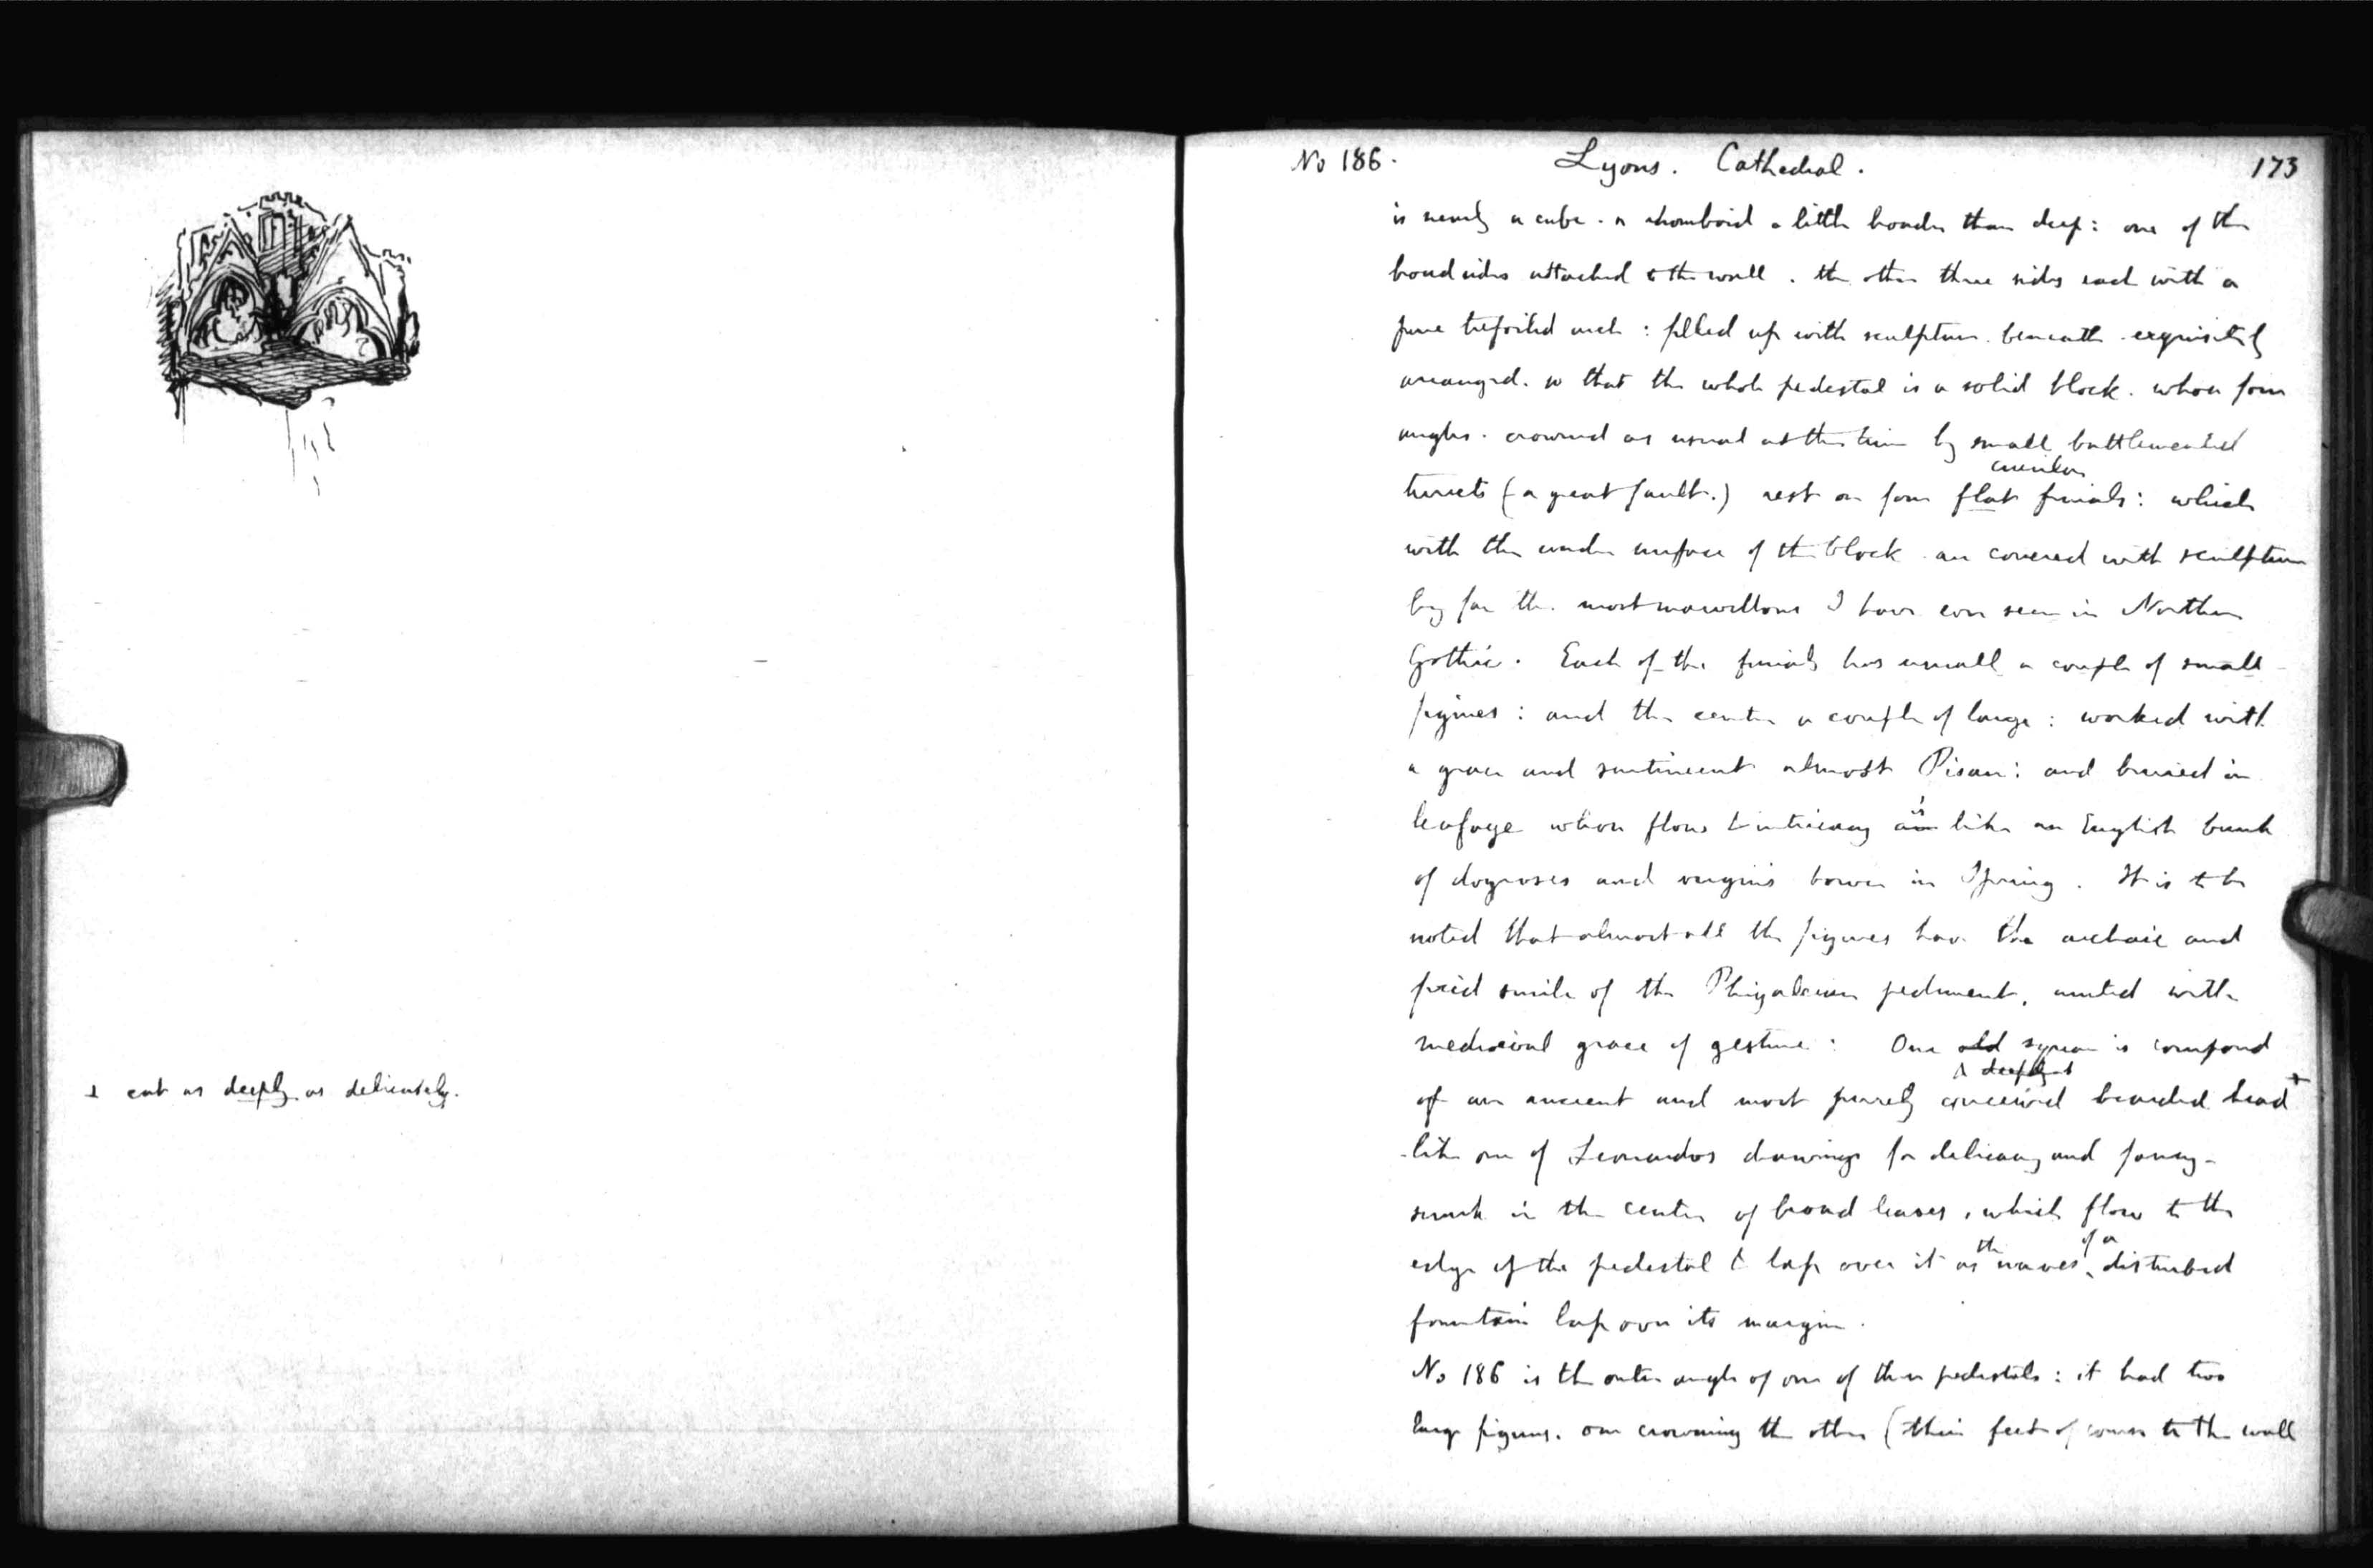 + cut as deeply as delicately.
No 186. Lyons. Cathedral. 173
is nearly a cube. a rhomboid a little broader than deep: one of the
broad sides attached to the wall. the other three sides each with a
pure trefoiled arch: filled up with sculpture. beneath exquisitely
arranged. so that the whole pedestal is a solid block. whose four
angles. crowned as usual at this time by small battlemented
circular
turrets (a great fault.) rest on four flat finials: which
with the under surface of the block are covered with sculpture
by far the most marvellous I have ever seen in Northern
Gothic. Each of the finials has usually a couple of small
figures: and the center a couple of large: worked with
a grace and sentiment almost Pisan: and buried in
leafage whose flow & intricacy is like an English bank
of dogroses and virgins bower in Spring. It is to be
noted that almost all the figures have the archaic and
fixed smile of the Phigaleian pediment, united with
mediaeval grace of gesture: One old square is composed
deeply cut
of an ancient and most purely conceived bearded head +
like one of Leonardos drawings for delicacy and fancy -
sunk in the center of broad leaves, which flow to the
edge of the pedestal & lap over it as the waves of a disturbed
fountain lap over its margin.
No 186 is the outer angle of one of these pedestals: it had two
large figures. one crowning the other (their feet of course to the wall